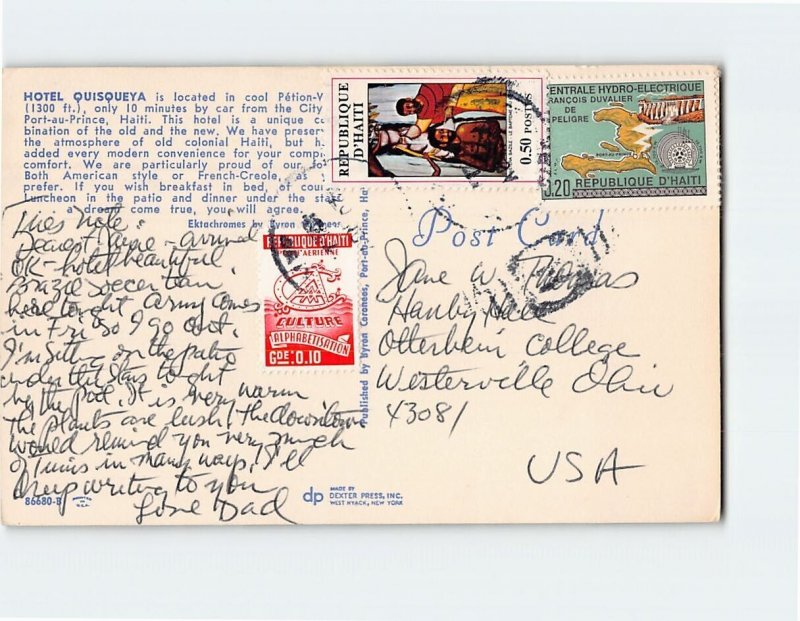 HOTEL QUISQUEYA is located in cool Pétion-V
(1300 ft.), only 10 minutes by car from the City
Port-au-Prince, Haiti. This hotel is a unique co
bination of the old and the new. We have preser
the atmosphere of old colonial Haiti, but h
added every modern convenience for your comp
comfort. We are particularly proud of our fo
Both American style or French-Creole, as
prefer. If you wish breakfast in bed, of cour
luncheon in the patio and dinner under the sta
a dream come true, you will agree.
Ektachromes by Byron
Tues Note:
Dearest arrival
OK - hotel beautiful.
Brazil soccer team
here tonight. Army comes
in Fri so I go out.
I'm sitting on the patio
under the stars tonight
by the pool. It is very warm
The plants are lush! The downtown
would remind you very much
of Tunis in many ways. I'll
keep writing to you
Love Dad
86680-B
dp
MADE BY
DEXTER PRESS, INC.
WEST NYACK, NEW YORK
Published by Byron Coroneos, Port-au-Prince, Ha
REPUBLIQUE
D'HAITI
0.50 POSTES
CENTRALE HYDRO-ELECTRIQUE
FRANÇOIS DUVALIER
DE
PELIGRE
PORT-AU-PRINCE
0.20 REPUBLIQUE D'HAITI
REPUBLIQUE D'HAITI
AERIENNE
CULTURE
ALPHABETISATION
GDE:0.10
Post Card
Jane W. Thomas
Hanby Hall
Otterbein College
Westerville Ohio
43081
USA